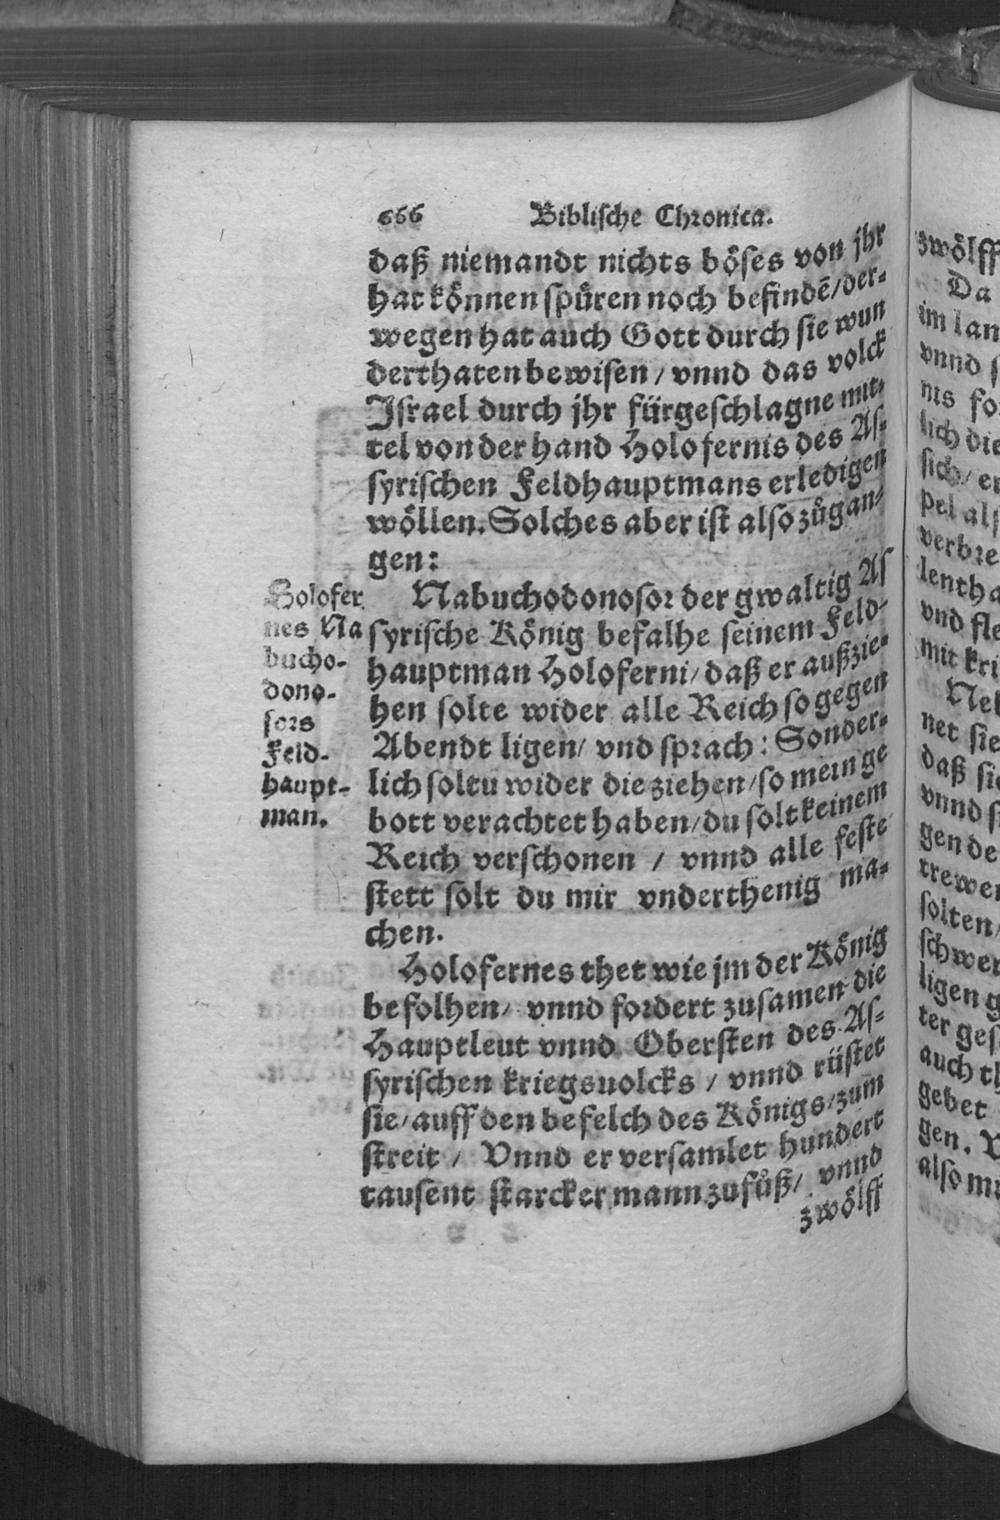 666 Biblische Chronica.
daß niemandt nichts böses von jhr
hat können spüren noch befindē/der-
wegen hat auch Gott durch sie wun
derthaten bewisen / vnnd das volck
Israel durch jhr fürgeschlagne mit-
tel von der hand Holofernis des As-
syrischen Feldhauptmans erledigen
wöllen. Solches aber ist also zůgan-
gen:
Nabuchodonosor der gwaltig As
syrische König befalhe seinem Feld-
hauptman Holoferni/ daß er außzie-
hen solte wider alle Reich so gegen
Abendt ligen/ vnd sprach: Sonder-
lich soltu wider die ziehen/so mein ge
bott verachtet haben/du solt keinem
Reich verschonen / vnnd alle feste
stett solt du mir vnderthenig ma-
chen.
Holofernes thet wie jm der König
befolhen/ vnnd fordert zusamen die
Hauptleut vnnd Obersten des As-
syrischen kriegsuolcks / vnnd rüstet
sie/auff den befelch des Königs/zum
streit / Vnnd er versamlet hundert
tausent starcker mann zufůß/ vnnd
zwölff
Holofer
nes Na
bucho-
dono-
sors
Feld-
haupt-
man.
zwölff
Da
im lan
vnnd s
nis fo
lich die
sich/ er
pel als
verbre
lentha
vnd fle
mit kri
Neb
net sie
daß sie
vnnd si
gen de
trewen
solten/
schwer
ligen g
ter ges
auch th
gebet
gen. V
also mu